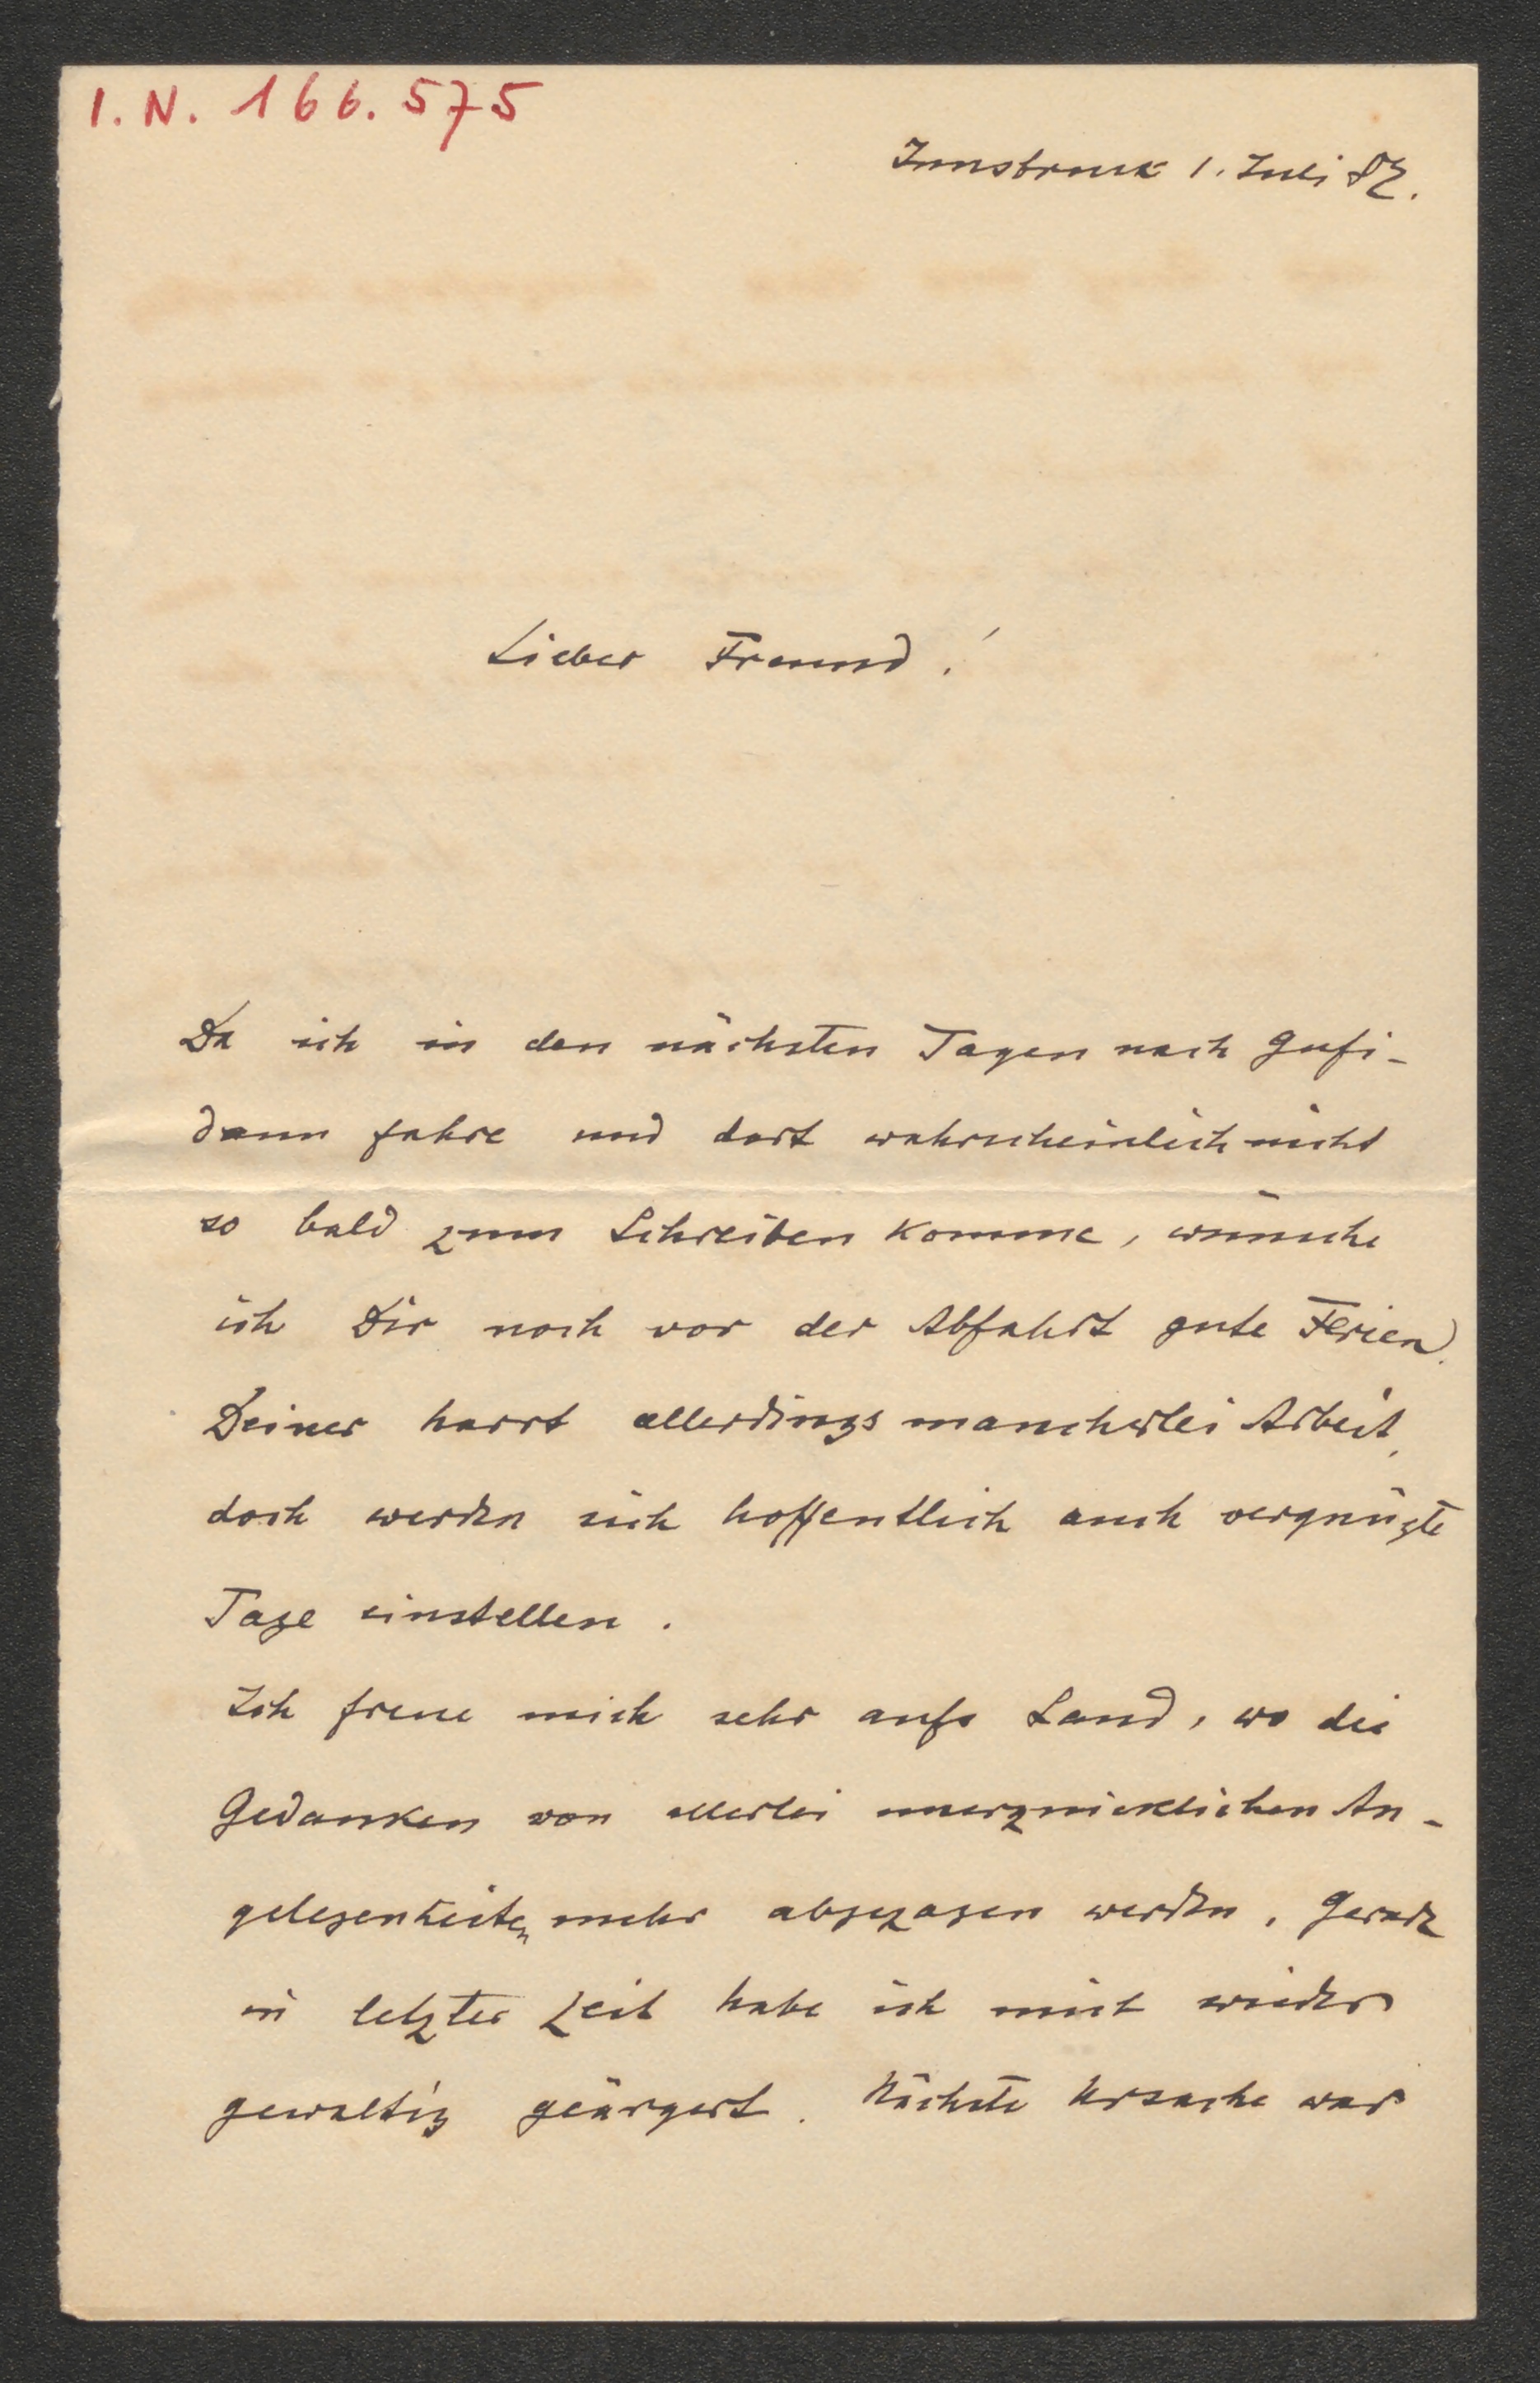 I. N. 166.575
Innsbruck 1. Juli 87.
Lieber Freund!
Da ich in den nächsten Tagen nach Gufi-
dann fahre und dort wahrscheinlich nicht
so bald zum Schreiben komme, wünsche
ich Dir noch vor der Abfahrt gute Ferien.
Deiner harrt allerdings mancherlei Arbeit,
doch werden sich hoffentlich auch vergnügte
Tage einstellen.
Ich freue mich sehr aufs Land, wo die
Gedanken von allerlei unerquicklichen An-
gelegenheiten mehr abgezogen werden. Gerade
in letzter Zeit habe ich mich wieder
gewaltig geärgert. Nächste Ursache war